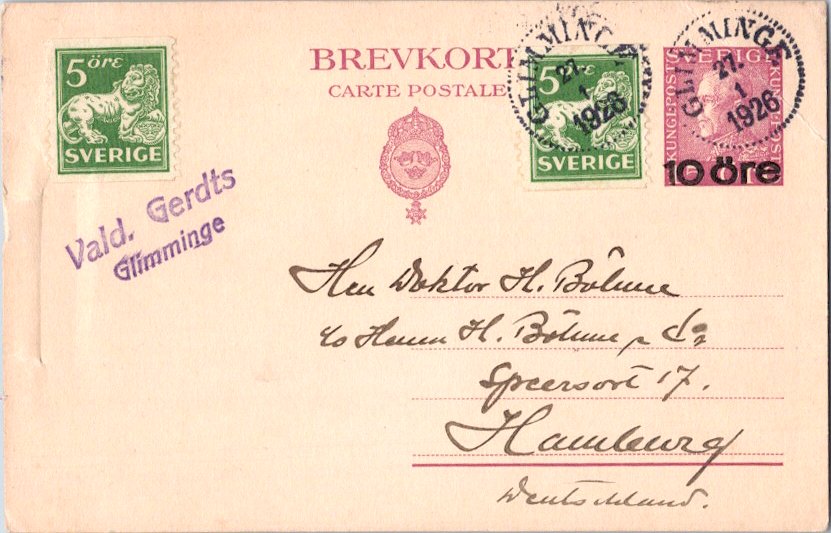 5 öre
SVERIGE
BREVKORT
CARTE POSTALE
5 öre
SVERIGE
GLIMMINGE
27.
1
1926
SVERIGE
KUNGL. POST
KUNGL. POST
GLIMMINGE
27.
1
1926
10 öre
Vald. Gerdts
Glimminge
Herr Doktor H. Böhme
c/o Herrn H. Böhme & Co
Speersort 17.
Hamburg
Deutschland.